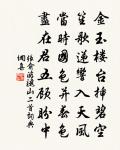 金玉樓台插碧空
笙歌遞響入天風
當時國色并春色
盡在君王顧盼中
俞的驪山二首詞典
網